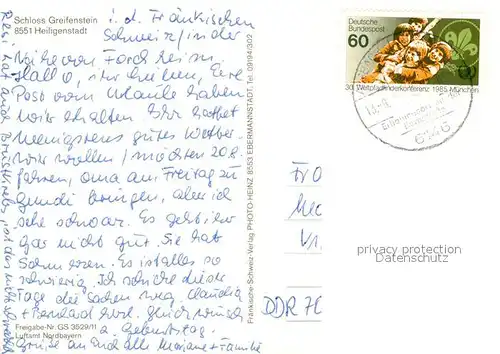 Schloss Greifenstein
8551 Heiligenstadt
i. d. Fränkischen
Schweiz/in der
Nähe von Forchheim
Hallo, ihr Lieben, Eure
Post vom Urlaub haben
wir erhalten. Ihr hattet
wenigstens gutes Wetter.
Wir wollen/möchten 20.8.
fahren, Oma am Freitag zu
Gundi bringen, aber ich
sehe schwarz. Es geht ihr
gar nicht gut. Sie hat
Schmerzen. Es ist alles so
schwierig. Ich schicke diese
Tage die Sachen weg. Claudia
+ Bernhard
z. Geburtstag.
Grüße an Euch alle Mariane + Familie
Freigabe-Nr. GS 3529/11
Luftamt Nordbayern
Res. hat auch Brustkrebs, ist das nicht schrecklich
Fränkische-Schweiz-Verlag PHOTO-HEINZ, 8553 EBERMANNSTADT, Tel. 09194/302
Deutsche
Bundespost
60
30. Weltpfadfinderkonferenz 1985 München
Fro
DDR 70
privacy protection
Datenschutz